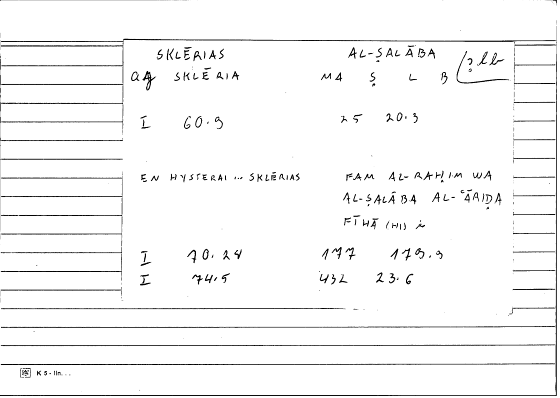 SKLĒRIAS AL-ṢALĀBA
SKLĒRIA MA Ṣ L B ṣlb
I 60.9 25 20.3
EN HYSTERAI ... SKLĒRIAS FAM AL-RAḤIM WA
AL-ṢALĀBA AL-ʿĀRIḌA
FĪHĀ (HI)
I 70.24 177 179.9
I 74.5 432 23.6
K 5 - lin. . .